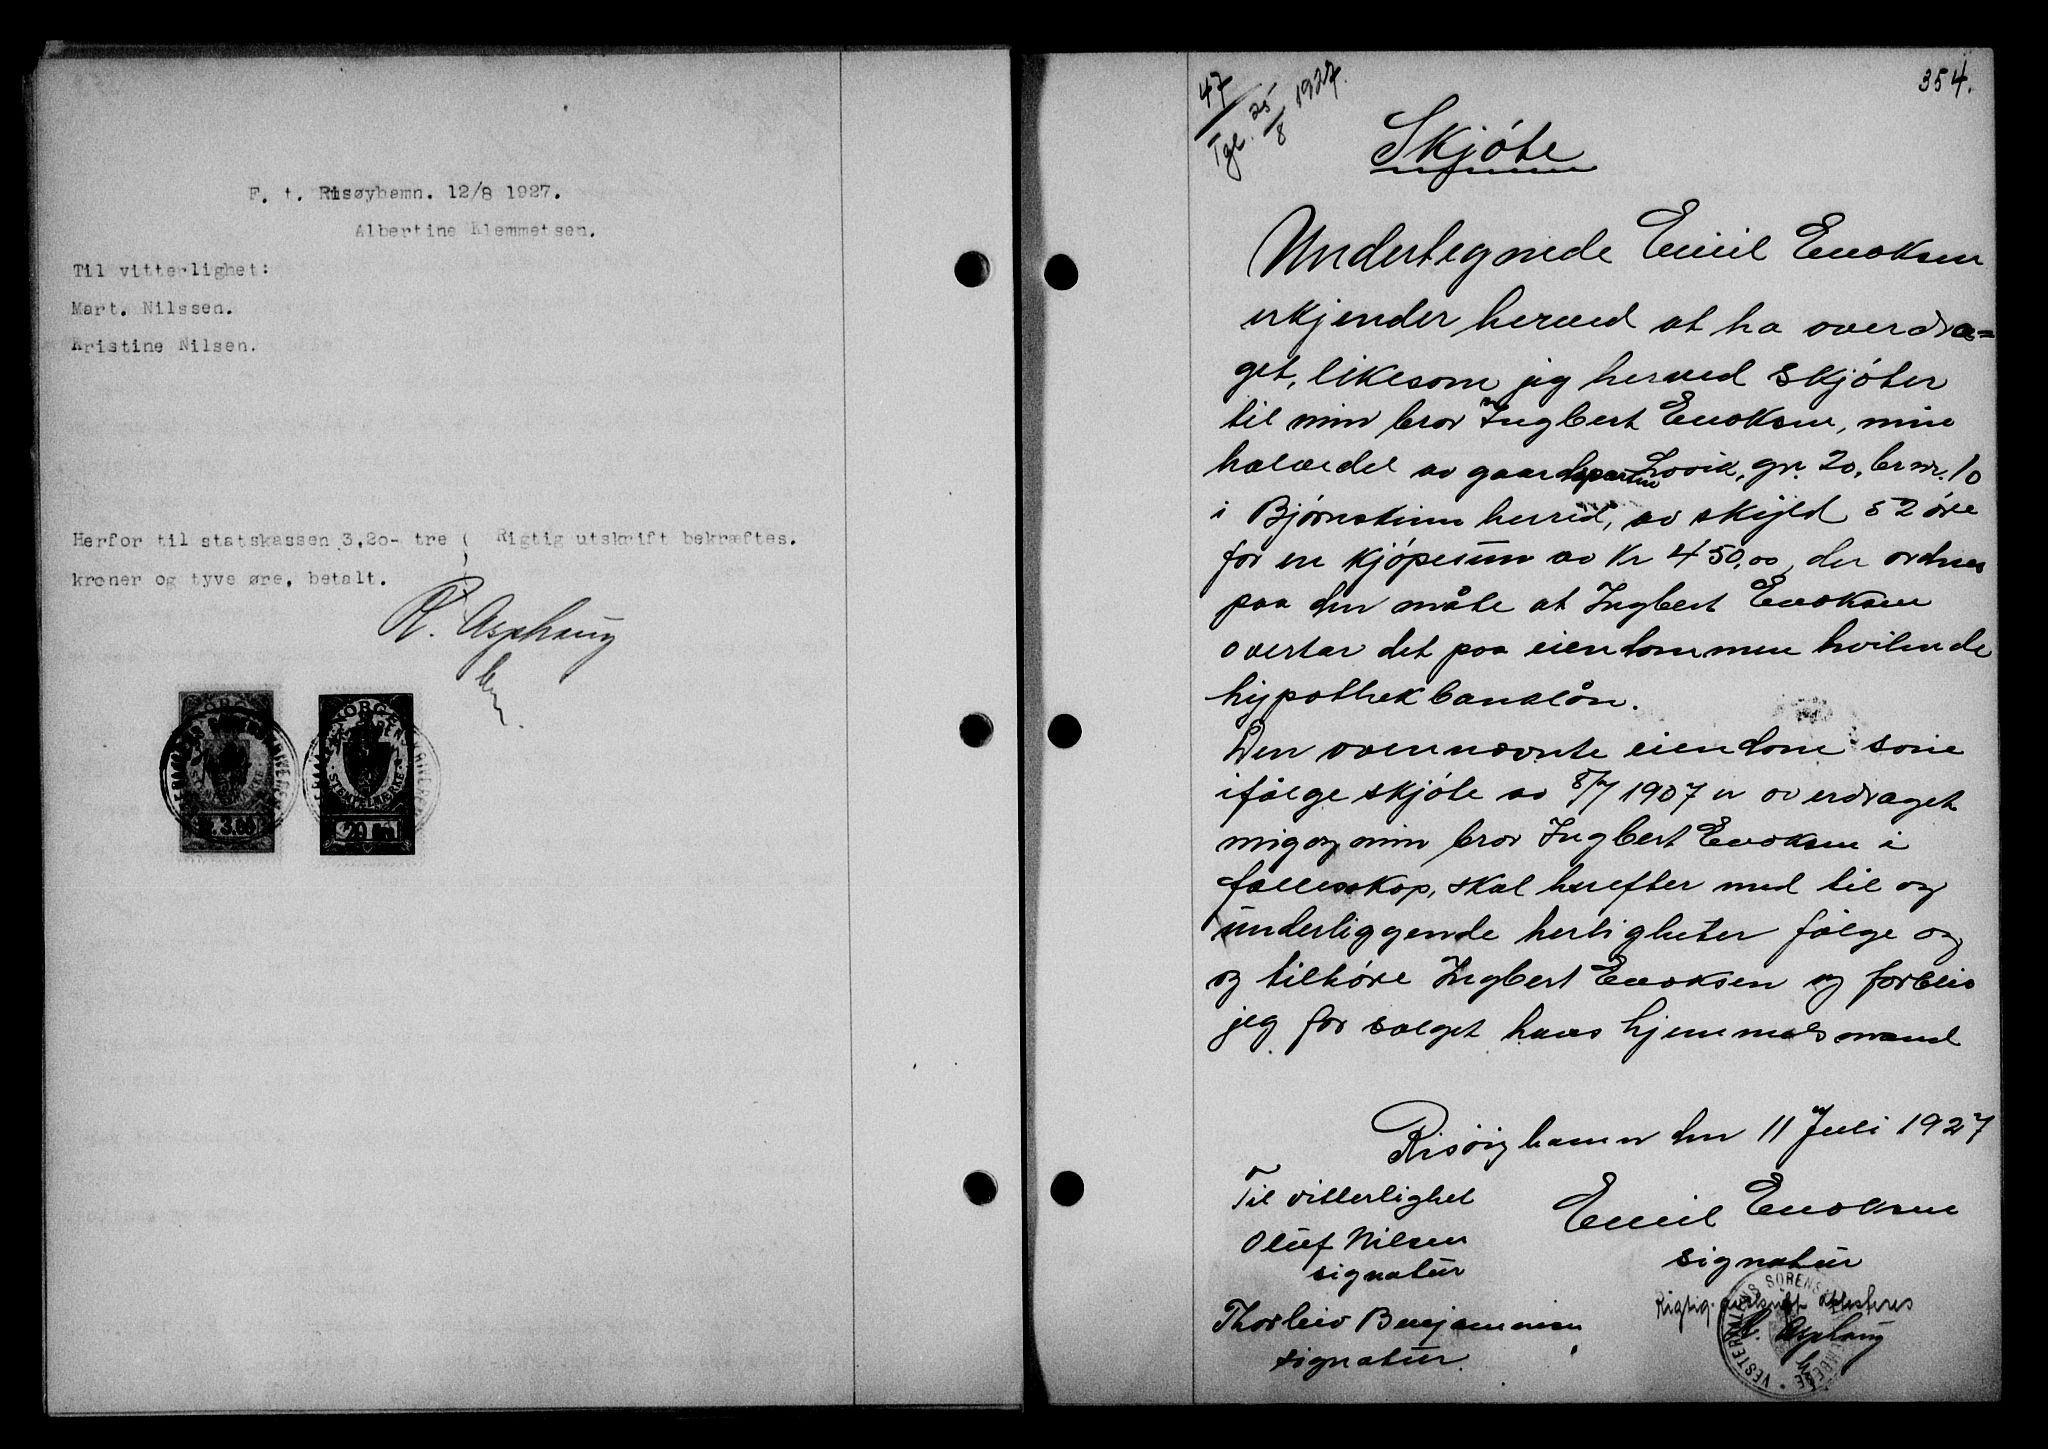 F. t. Risøyhamn. 12/8 1927.
Albertine Klemmetsen.
Til vitterlighet:
Mart. Nilssen.
Kristine Nilsen.
Herfor til statskassen 3,20- tre
kroner og tyve øre, betalt.
Rigtig utskrift bekræftes.
R. Asphaug
NORGE
STEMPELMERKE
20 øre
47
Tgl. 25/8 1927.
354.
Skjøte
Undertegnede Emil Enoksen
erkjender herved at ha overdra=
get, likesom jeg herved skjøter
til min bror Ingbert Enoksen, min
halvedel av gaardsparten Lovik, gn. 20, br. nr. 10
i Bjørnskinn herred, av skyld 52 øre
for en kjøpesum av Kr 450,00, der ordnes
paa den måte at Ingbert Enoksen
overtar det paa eiendommen hvilende
hypothekbanklån.
Den ovennævnte eiendom som
ifølge skjøte av 8/7 1907 er overdraget
mig og min bror Ingbert Enoksen i
fællesskap, skal herefter med til og
underliggende herligheter følge og
og tilhøre Ingbert Enoksen og forblir
jeg for salget hans hjemmelsmand
Risøyhamn den 11 Juli 1927
Til vitterlighet
Oluf Nilsen
signatur
Thorleiv Benjaminsen
signatur.
Emil Enoksen
signatur
Rigtig avskrift attesteres
R. Asphaug